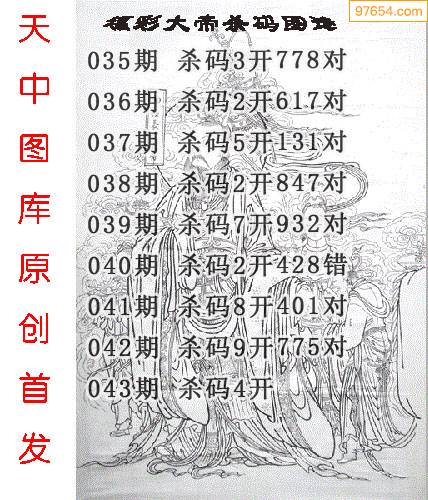 97654.com
福彩大帝杀码图选
035期 杀码3开778对
036期 杀码2开617对
037期 杀码5开131对
038期 杀码2开847对
039期 杀码7开932对
040期 杀码2开428错
041期 杀码8开401对
042期 杀码9开775对
043期 杀码4开
天中图库原创首发